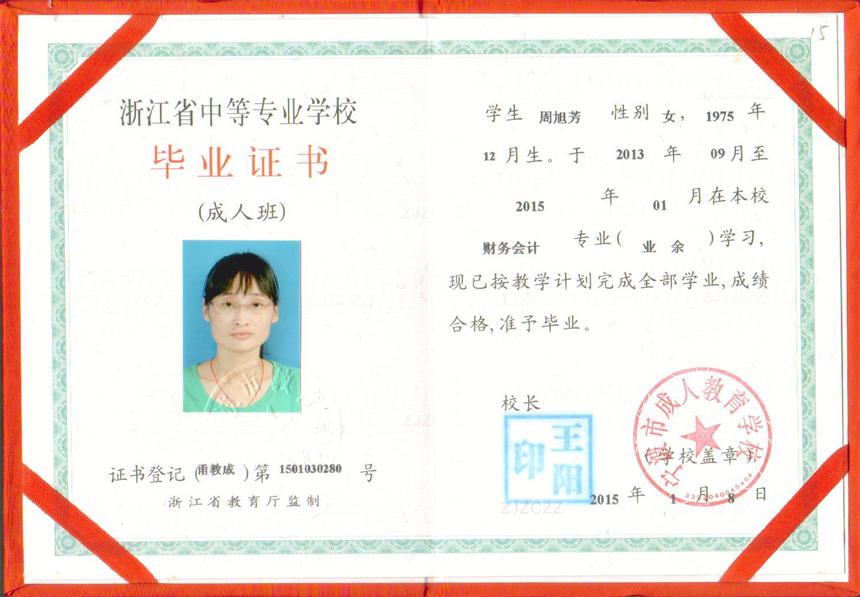 浙江省中等专业学校
毕业证书
(成人班)
证书登记(甬教成)第 1501030280 号
浙江省教育厅监制
15
学生 周旭芳 性别 女, 1975 年
12 月生。于 2013 年 09 月至
2015 年 01 月在本校
财务会计 专业( 业余 )学习,
现已按教学计划完成全部学业,成绩
合格,准予毕业。
校长
王阳印
宁波市成人教育学校
(学校盖章)
2015 年 1 月 8 日
ZJZCZZ